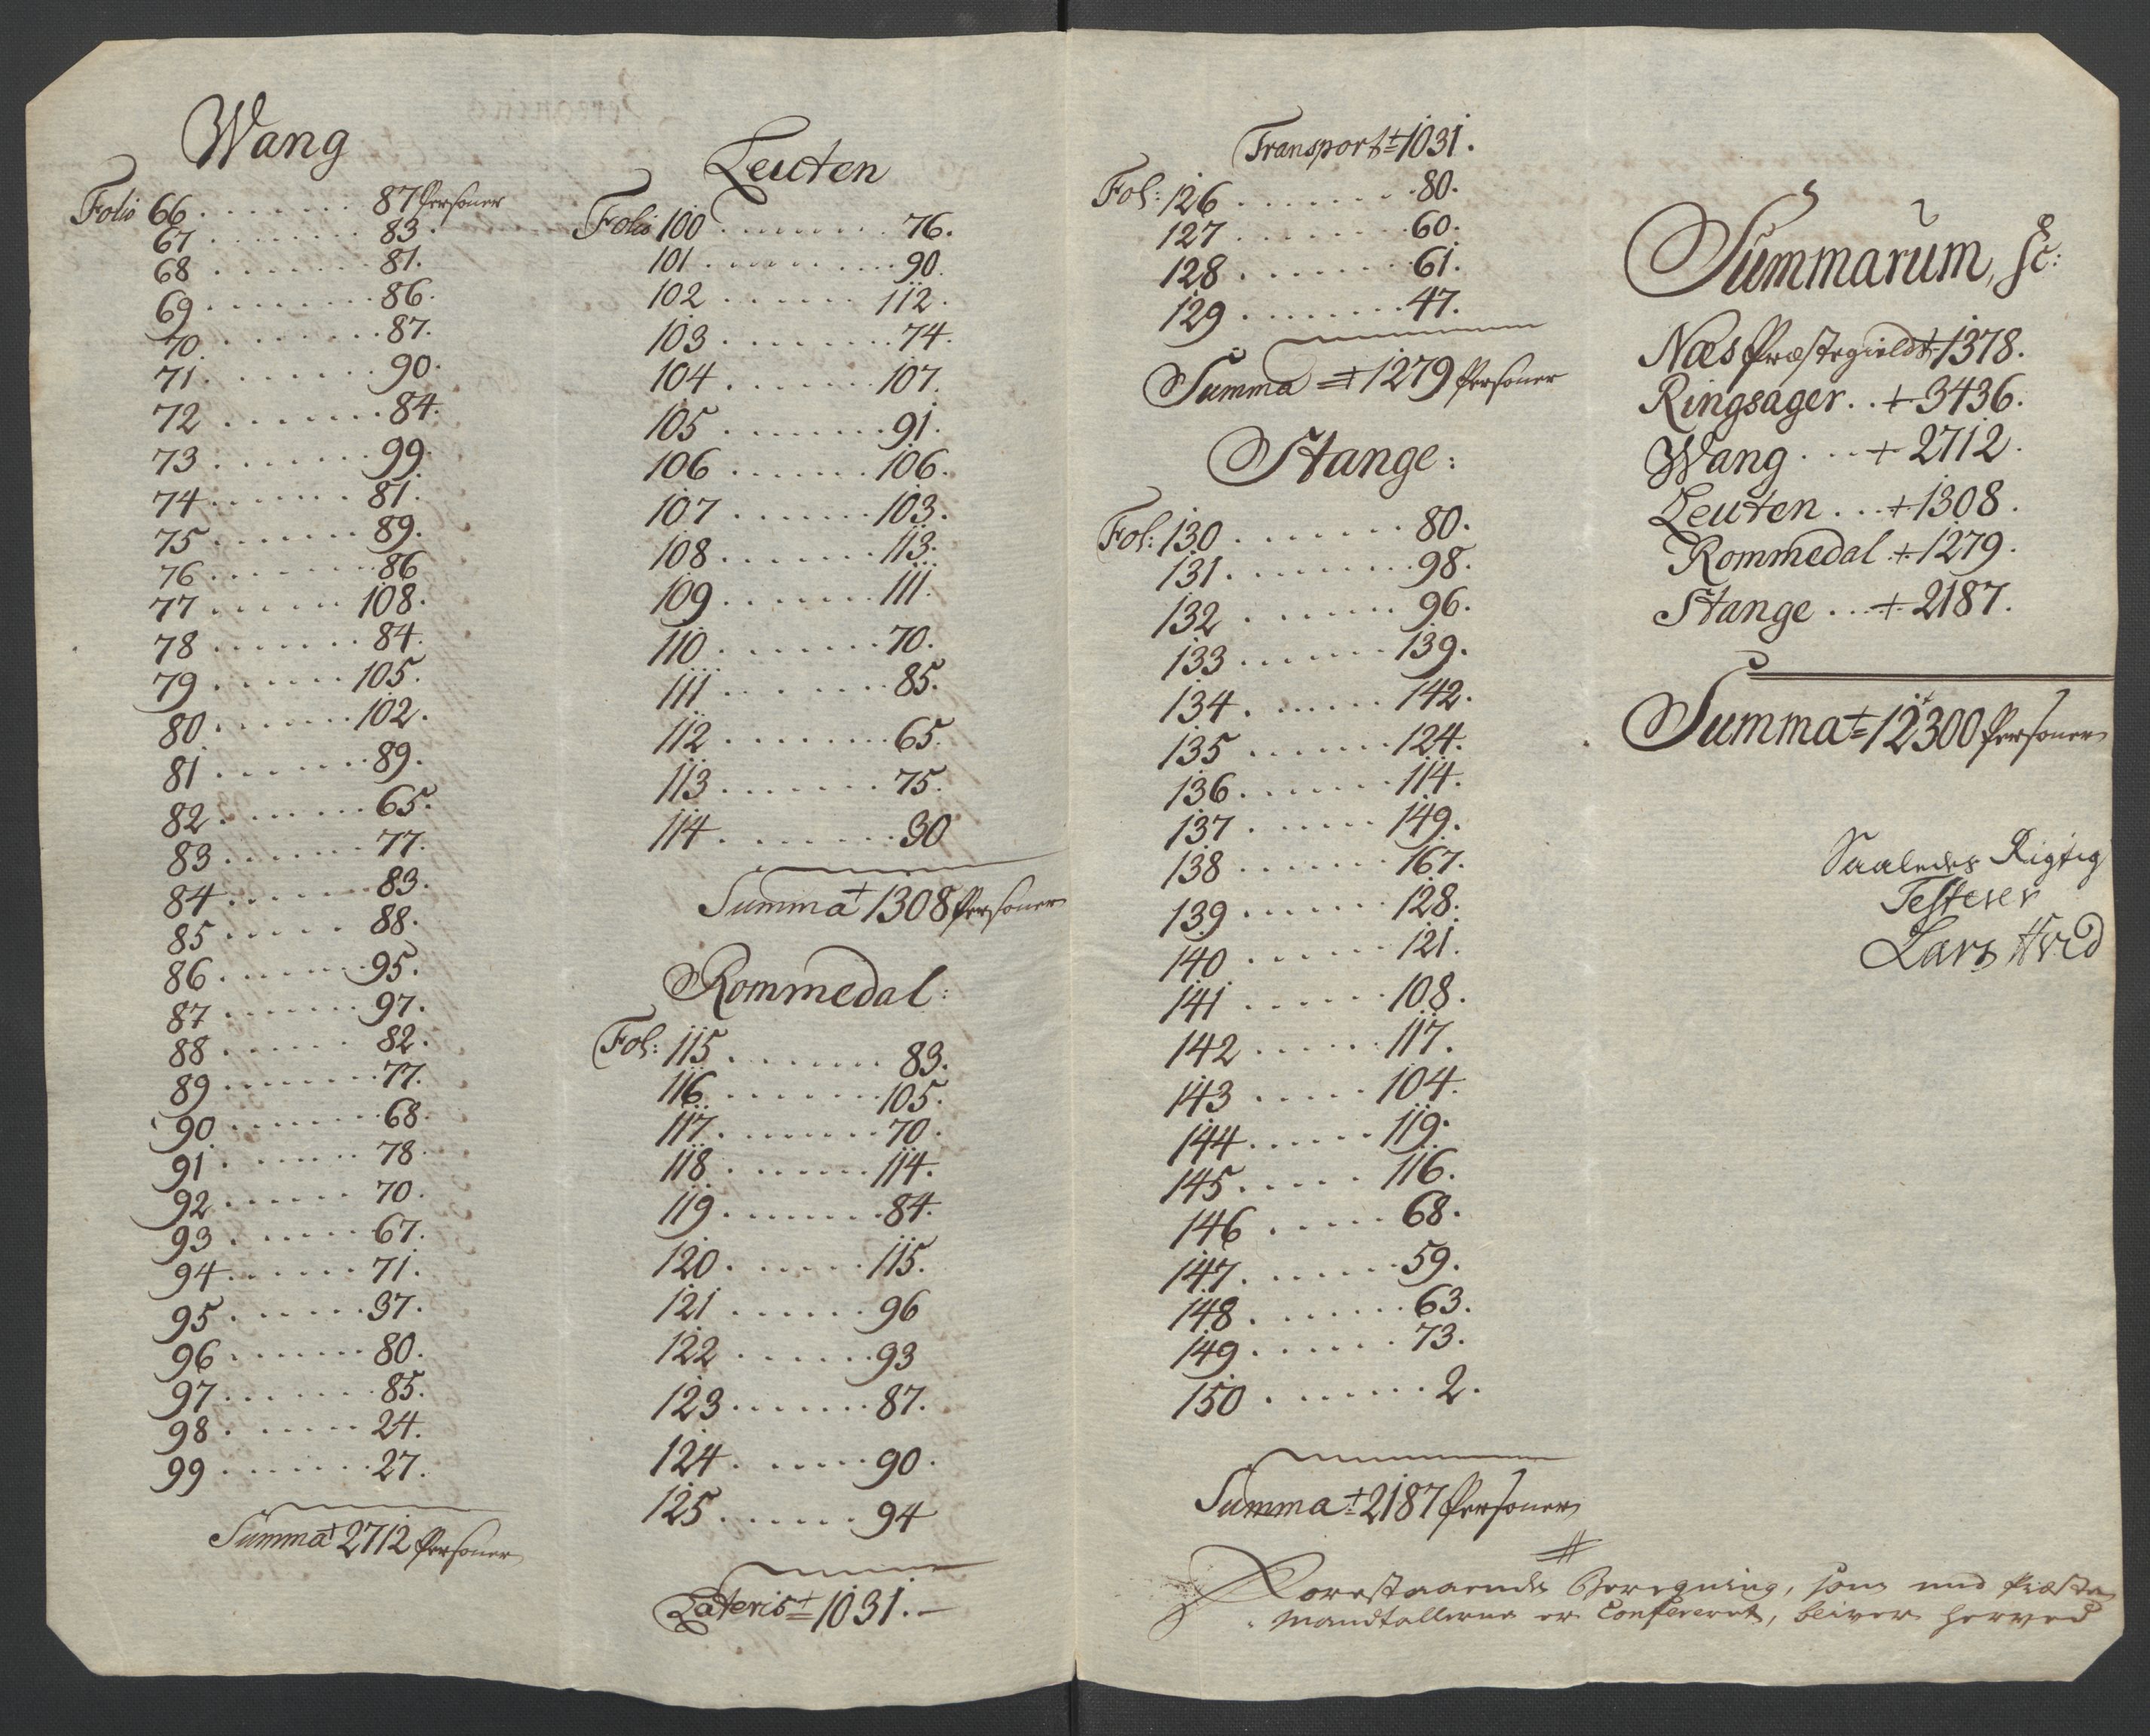 Wang
Folio 66 . . . . . . . 87 Personer
67 . . . . . . . 83.
68 . . . . . . . 81.
69 . . . . . . . 86.
70 . . . . . . . 87.
71 . . . . . . . 90.
72 . . . . . . . 84.
73 . . . . . . . 99.
74 . . . . . . . 81.
75 . . . . . . . 89.
76 . . . . . . . 86
77 . . . . . . 108.
78 . . . . . . . 84.
79 . . . . . . 105.
80 . . . . . . 102.
81 . . . . . . . 89.
82 . . . . . . . 65.
83 . . . . . . . 77.
84 . . . . . . . 83.
85 . . . . . 88.
86 . . . . . . 95.
87 . . . . . . . 97.
88 . . . . . . 82.
89 . . . . . . . 77.
90 . . . . . . . 68.
91 . . . . . . . 78.
92 . . . . . . 70.
93 . . . . . . 67.
94 . . . . . . 71.
95 . . . . . . 37.
96 . . . . . . . 80.
97 . . . . . . . 85.
98 . . . . . . 24.
99 . . . . . . . 27.
Summa 2712 Personer
Leuten
Folio 100 . . . . . . . . 76.
101 . . . . . . . . 90.
102 . . . . . . 112.
103 . . . . . . . . 74.
104 . . . . . . . 107.
105 . . . . . . . . 91.
106 . . . . . . 106.
107 . . . . . . . 103.
108 . . . . . . . 113.
109 . . . . . . . 111.
110 . . . . . . . 70.
111 . . . . . . . 85.
112 . . . . . . . . 65.
113 . . . . . . . 75.
114 . . . . . . . 30
Summa 1308 Personer
Rommedal:
Fol: 115 . . . . . . . 83.
116 . . . . . . . 105.
117 . . . . . . . 70.
118 . . . . . . . 114.
119 . . . . . . . 84.
120 . . . . . . 115.
121 . . . . . . 96
122 . . . . . . 93
123 . . . . . . . 87.
124 . . . . . . 90.
125 . . . . . . 94
Lateris 1031.
Transport 1031.
Fol: 126 . . . . . . . 80.
127 . . . . . . . 60.
128 . . . . . . . 61.
129 . . . . . . . . 47.
Summa 1279 Personer
Stange:
Fol: 130 . . . . . . . 80.
131 . . . . . . . . 98.
132 . . . . . . . 96.
133 . . . . . . 139.
134 . . . . . . 142.
135 . . . . . . 124.
136 . . . . . . 114.
137 . . . . . . 149.
138 . . . . . . . 167.
139 . . . . . . 128.
140 . . . . . . 121.
141 . . . . . . 108.
142 . . . . . . 117.
143 . . . . . 104.
144 . . . . . . 119.
145 . . . . . 116.
146 . . . . . 68.
147 . . . . . . 59.
148 . . . . . . . 63.
149 . . . . . . 73.
150 . . . . . . . 2.
Summa 2187 Personer
Forestaaende Beregning, som med Præste
Mandtallerne er Confereret, bliver herved
Summarum, sc:
Næs Præstegieldt 1378.
Ringsager . . 3436.
Wang . . . 2712.
Leuten . . . 1308.
Rommedal . 1279.
Stange . . . 2187.
Summa 12300 Personer
Saaledes Rigtig
Testerer
Lars